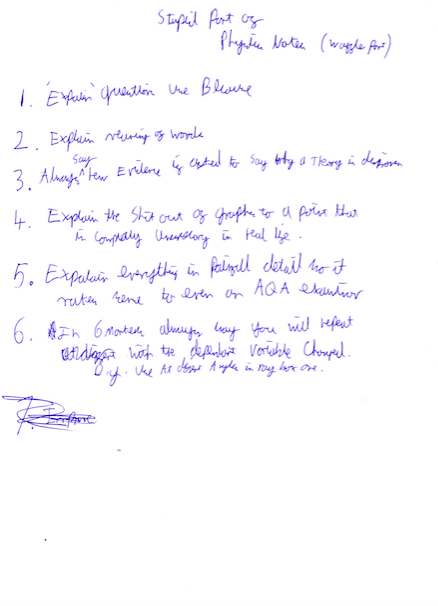 Stupid Part of
Physics Notes (waffle part)
1. 'Explain' Question use Because
2. Explain meaning of words
3. Always say new Evidence if asked to say why a Theory is disproven
4. Explain the Shit out of graphs to a point that
is completely unnecessary in real life.
5. Explain everything in detail so it
makes sense to even an AQA examiner
6. In 6 markers always say you will repeat
with the variable Changed.
Use At Angles in ray box one.